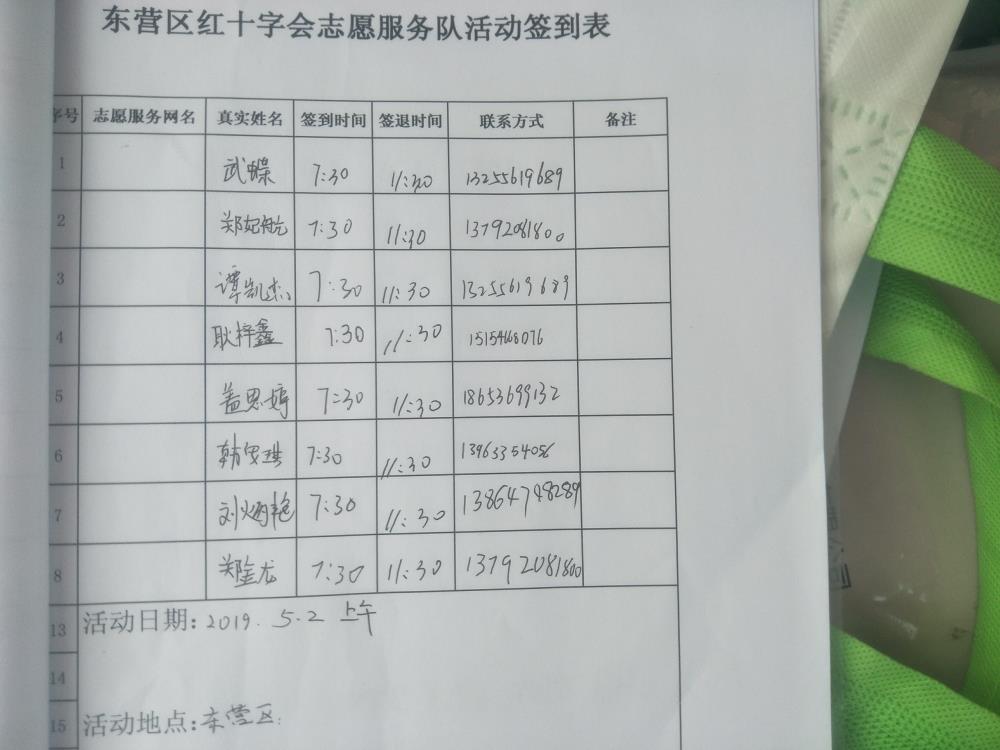 东营区红十字会志愿服务队活动签到表
序号 志愿服务网名 真实姓名 签到时间 签退时间 联系方式 备注
1 武蝶 7:30 11:30 13255619689
2 郑妃航 7:30 11:30 13792081800
3 谭凯杰 7:30 11:30 13255619689
4 耿梓鑫 7:30 11:30 1515468076
5 盖思婷 7:30 11:30 18653699132
6 韩旻琪 7:30 11:30 13963354056
7 刘炳艳 7:30 11:30 13864748289
8 郑金龙 7:30 11:30 13792081800
13 活动日期: 2019.5.2 上午
14
15 活动地点: 东营区